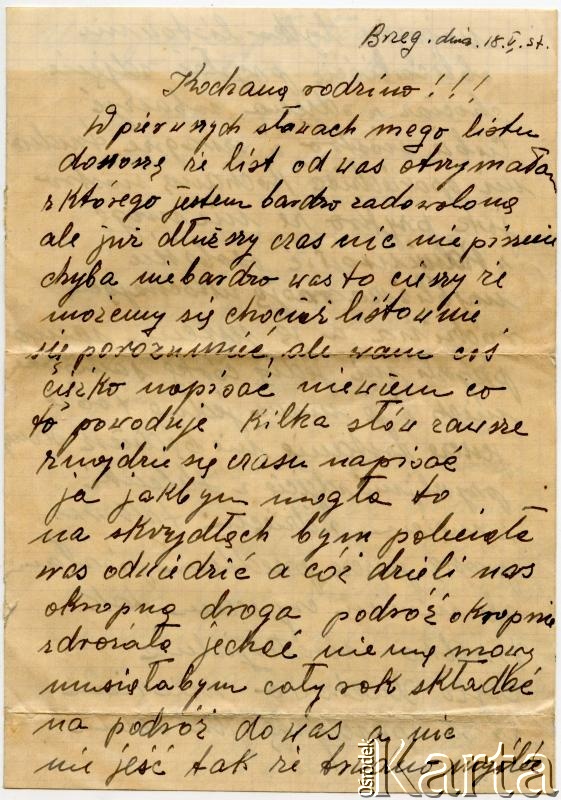 Brzeg. dnia. 18.V.57.
Kochana rodzino!!!
W pierwszych słowach mego listu
donoszę że list od was otrzymałam
z którego jestem bardzo zadowoloną
ale już dłuższy czas nic nie piszecie
chyba niebardzo was to cieszy że
możemy się chociż listownie
się porozumieć, ale wam coś
ciężko napisać niewiem co
to powoduje Kilka słów zawsze
znojdzie się czasu napisać
ja jakbym mogła to
na skrzydłach bym poleciała
was odwiedzić a cóż dzieli nas
okropna droga podróż okropnie
zdrożała jechać niema mowy
musiałabym cały rok składać
na podróż do was a nic
nie jeść tak że trudno myśleć
Ośrodek Karta
©